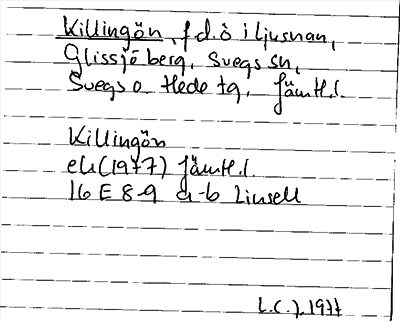 Killingön, f.d. ö i Ljusnan,
Glissjöberg, Svegs sn,
Svegs o. Hede tg, Jämtl.l.
Killingön
ek (1977) Jämtl.l.
16 E 8-9 a-b Linsell
L.C.J. 1977